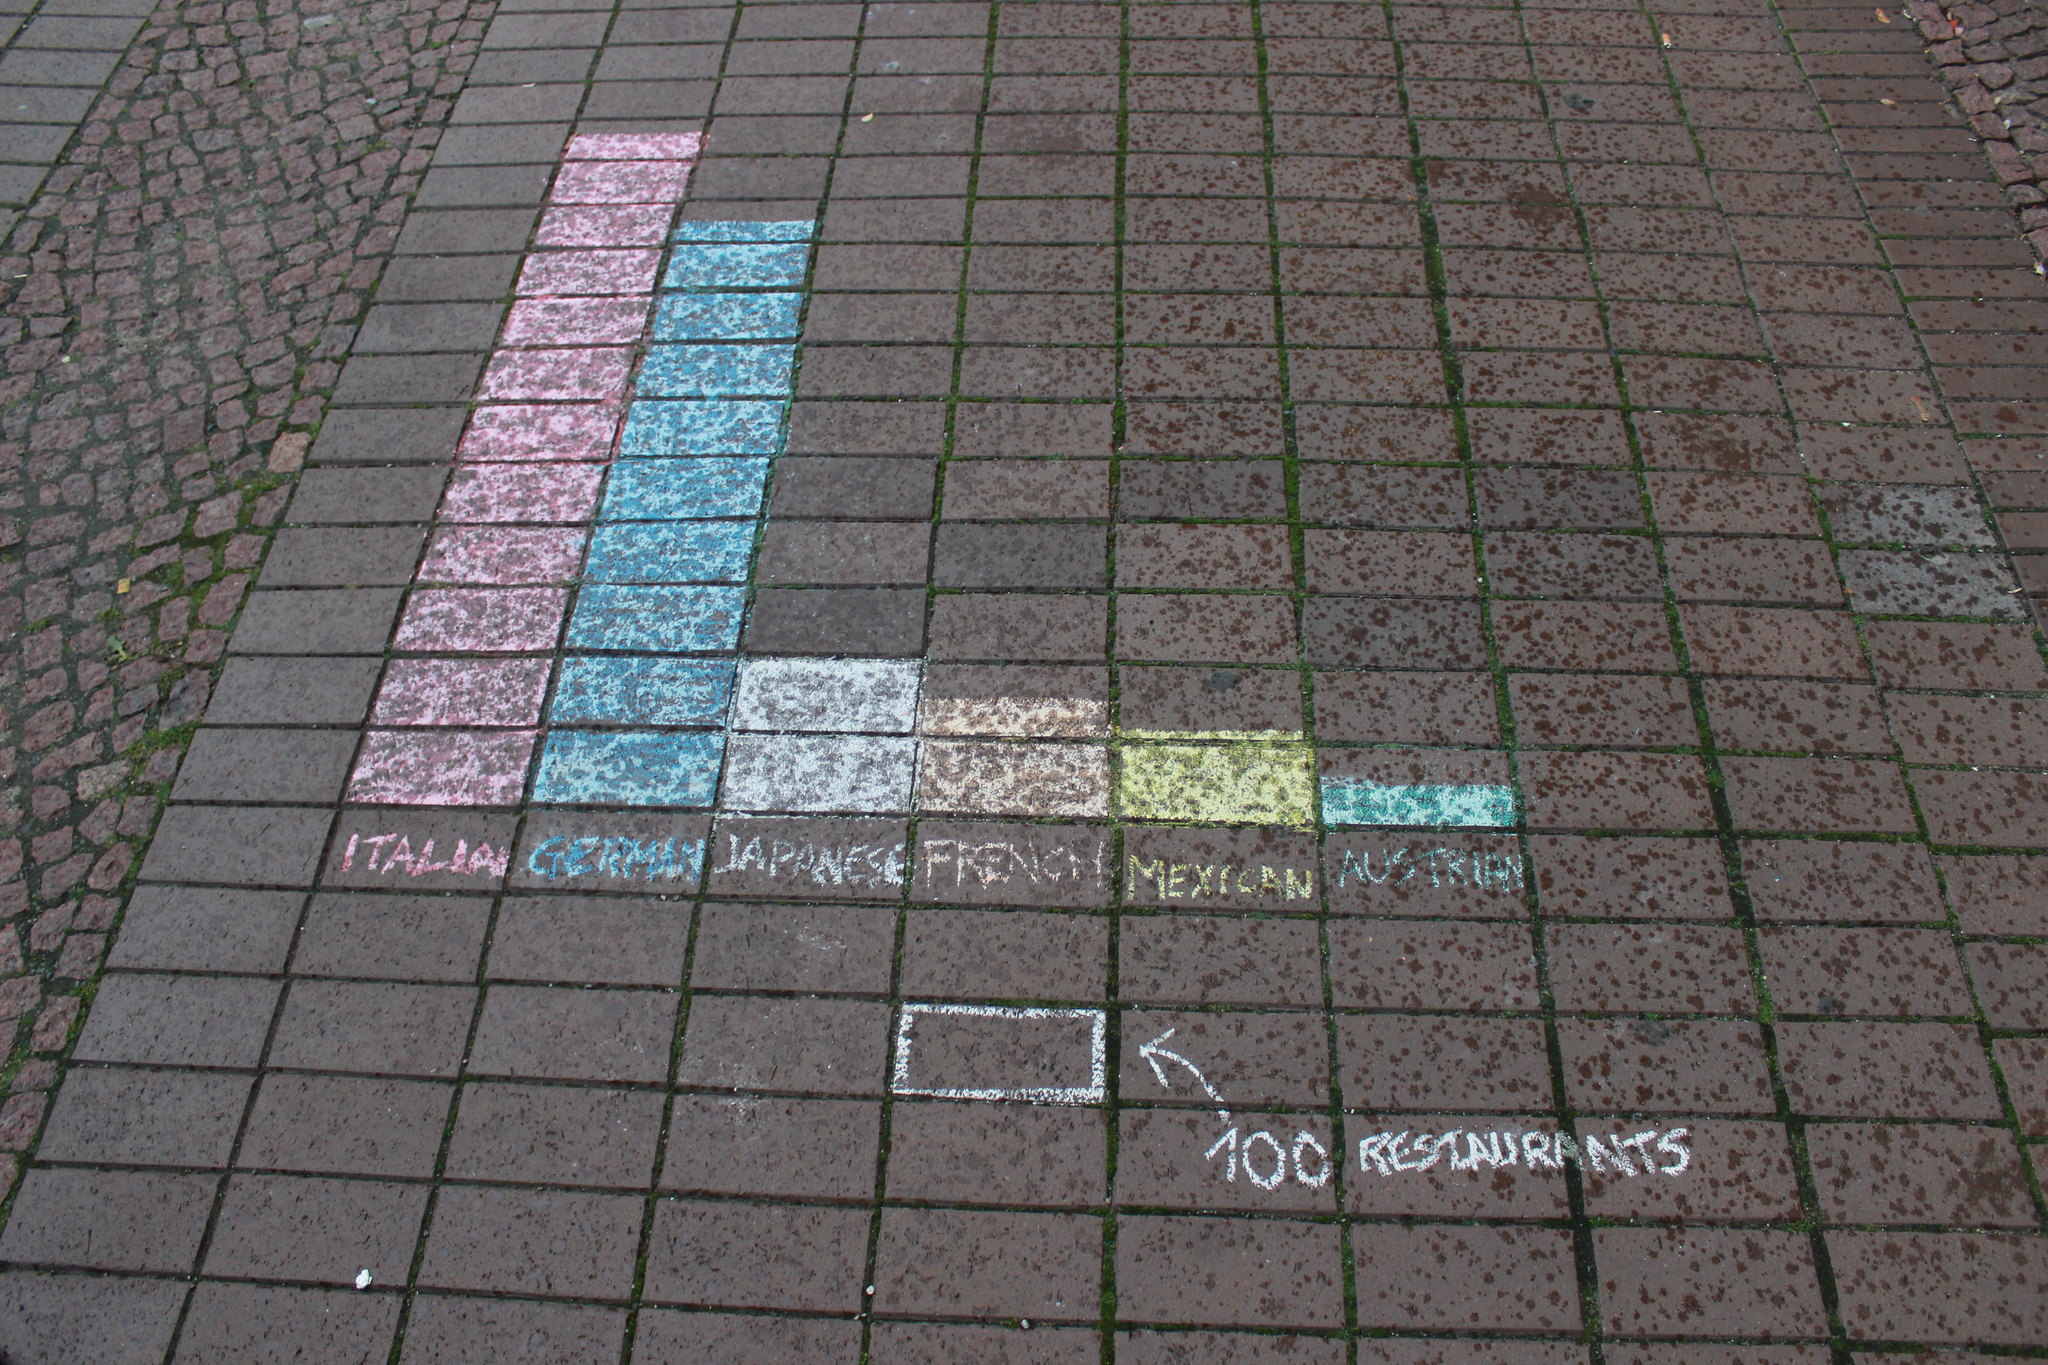 ITALIAN GERMAN JAPANESE FRENCH MEXICAN AUSTRIAN
100 RESTAURANTS